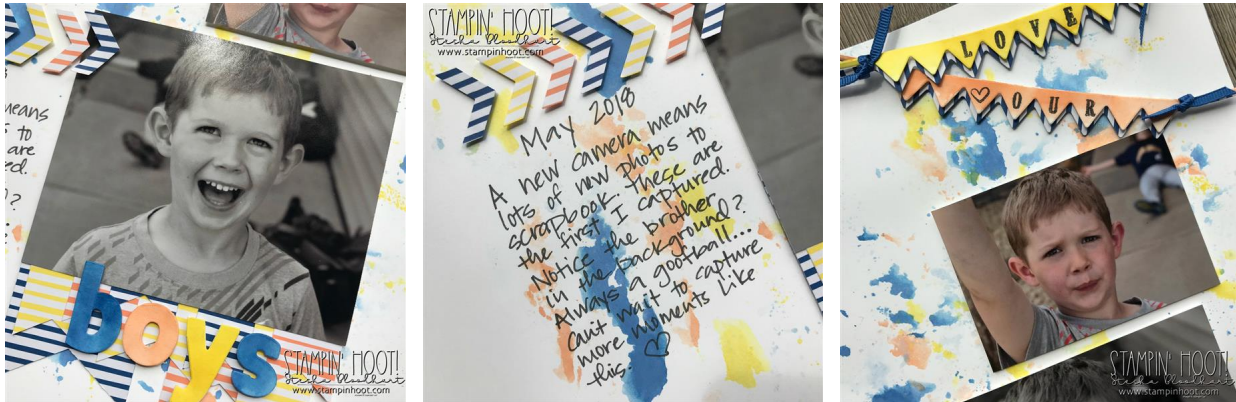 means
s to
are
ed.
?
boys
STAMPIN' HOOT!
Stesha Bloodhart
www.stampinhoot.com
STAMPIN' HOOT!
Stesha Bloodhart
www.stampinhoot.com
May 2018
A new camera means
lots of new photos to
scrapbook these are
the first I captured.
Notice the brother
in the background?
Always a gootball...
can't wait to capture
more moments like
this. ♡
LOVE
♡ OUR
STAMPIN' HOOT!
Stesha Bloodhart
www.stampinhoot.com